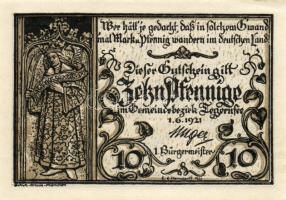 Wer hätt' je gedacht, daß in solchem Gwand
mal Mark u. Pfennig wandern im deutschen Land
Dieser Gutschein gilt
Zehn Pfennige
im Gemeindebezirk Tegernsee
1.6.1921
1. Bürgermeister
10 10